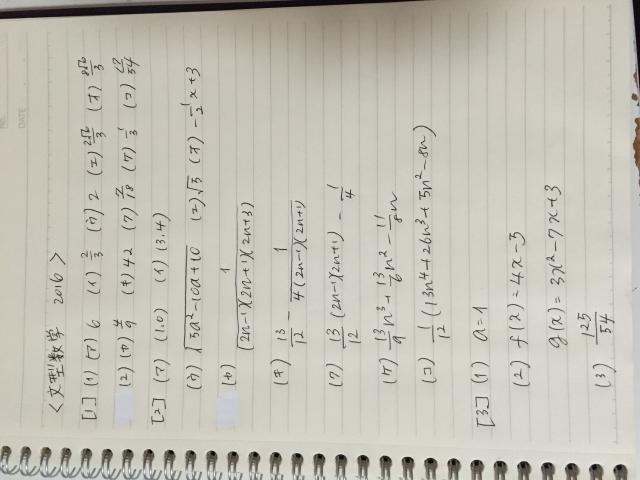 <文型数学 2016>
[1] (1) (ア) 6 (イ) 2/3 (ウ) 2 (エ) 2√6/3 (オ) 8√6/3
(2) (カ) 4/9 (キ) 42 (ク) 7/18 (ケ) 1/3 (コ)
[2] (ア) (1.0) (イ) (3.4)
(ウ) √5a²-10a+10 (エ) √5 (オ) -1/2x+3
(カ) 1/(2n-1)(2n+1)(2n+3)
(キ) 13/12 - 1/4(2n-1)(2n+1)
(ク) 13/12(2n-1)(2n+1) - 1/4
(ケ) 13/9n³+13/6n²-11/8n
(コ) 1/12(13n⁴+26n³+5n²-8n)
[3] (1) a=1
(2) f(x)=4x-5
g(x)=3x²-7x+3
(3) 125/54
NO.
DATE